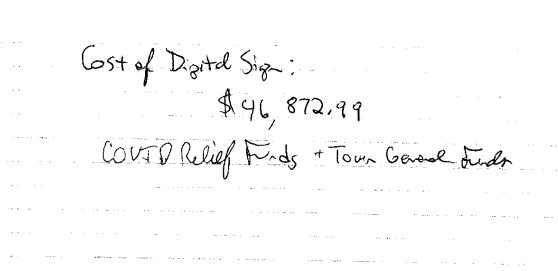 Cost of Digital Sign:
$46,872.99
COVID Relief Funds + Town General Funds